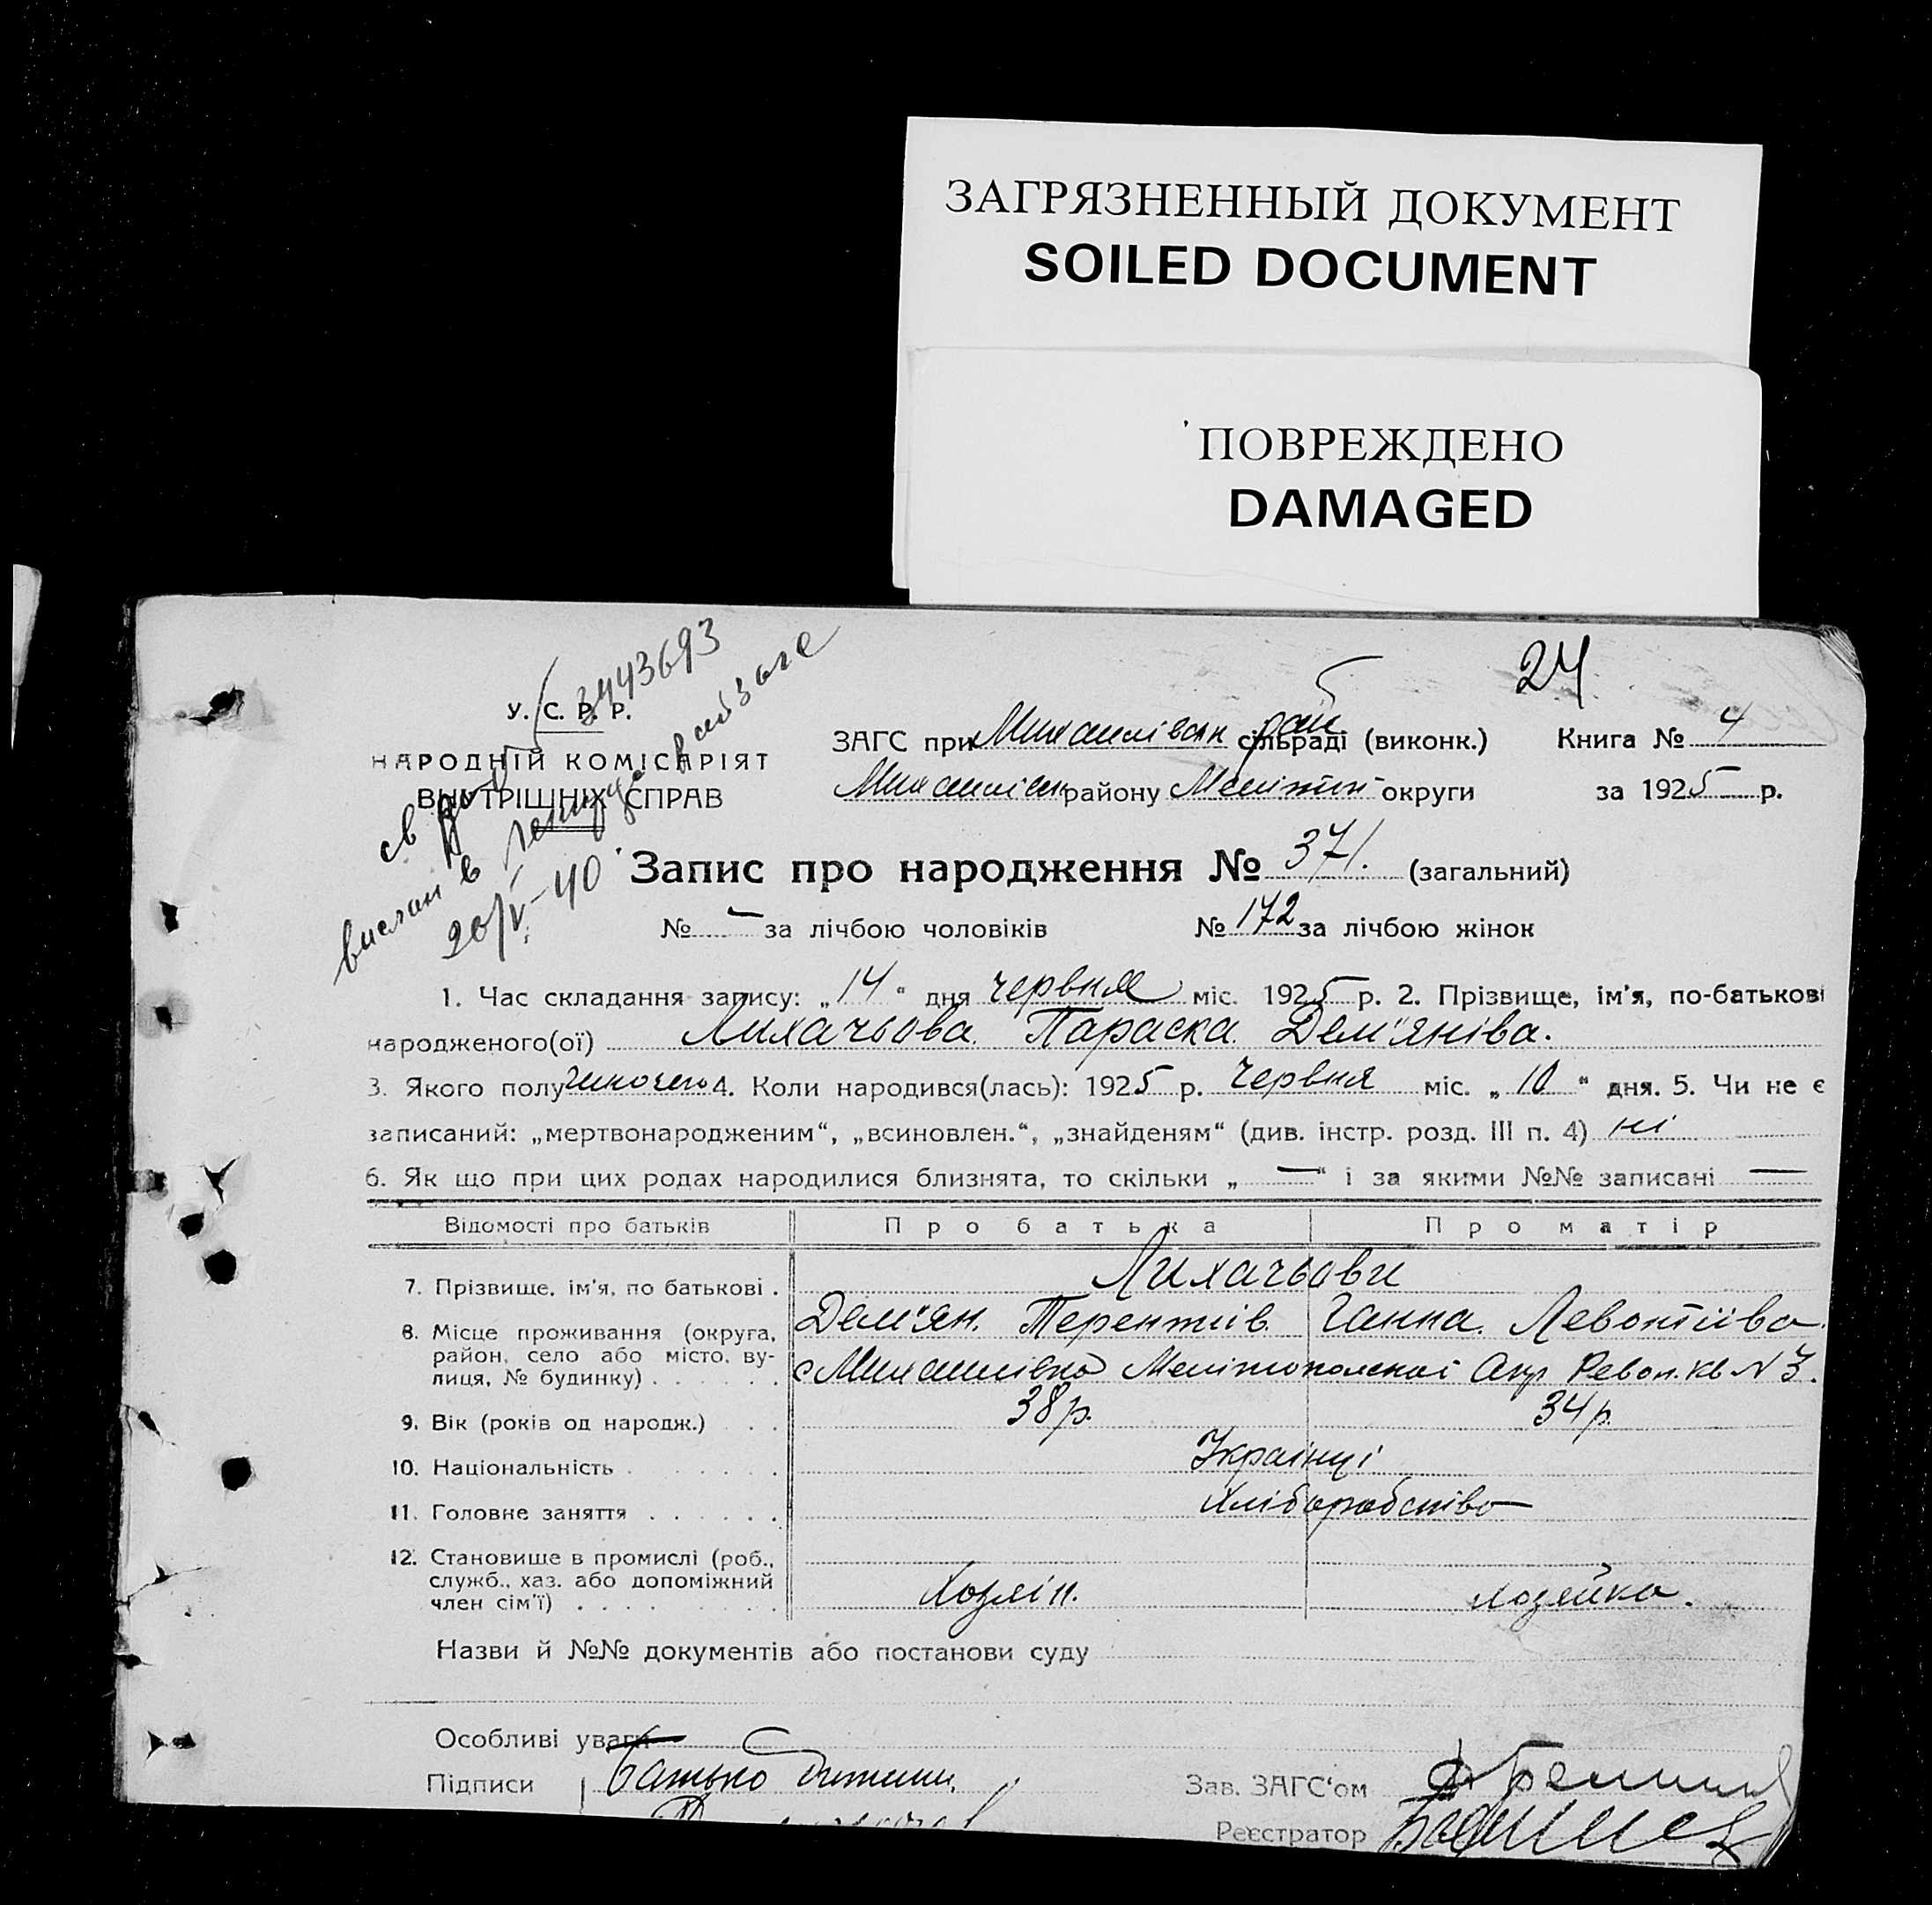 ЗАГРЯЗНЕННЫЙ ДОКУМЕНТ
SOILED DOCUMENT
ПОВРЕЖДЕНО
DAMAGED
24
3443693
св
вислан в
20/V-40
У. С. Р. Р.
НАРОДНІЙ КОМІСАРІЯТ
ВНУТРІШНІХ СПРАВ
ЗАГС при Михайлівськ рай сільраді (виконк.) Книга № 4
Михайлівськ району Мелітоп округи за 1925 р.
Запис про народження № 371. (загальний)
№ – за лічбою чоловіків № 172 за лічбою жінок
1. Час складання запису: „14“ дня червня міс. 1925 р. 2. Прізвище, ім'я, по-батькові
народженого(ої) Лихачьова Параска Дем'янівa.
3. Якого полу жиночего 4. Коли народився(лась): 1925 р. Червня міс. „10“ дня. 5. Чи не є
записаний: „мертвонародженим“, „всиновлен.“, „знайденям“ (див. інстр. розд. III п. 4) ні
6. Як що при цих родах народилися близнята, то скільки „—“ і за якими №№ записані —
Відомості про батьків Про батька Про матір
7. Прізвище, ім'я, по батькові . Лихачьови
Дем'ян. Терентіїв. Ганна. Левонтіїва.
8. Місце проживання (округа,
район, село або місто, ву-
лиця, № будинку) . . . . . . с Михайлівка Мелітопольскоі Окр Револ. кв № 3.
9. Вік (років од народж.) . . 38 р. 34 р.
10. Національність . . . . . . . Українці
11. Головне заняття . . . . . . Хліборобство
12. Становище в промислі (роб.,
служб., хаз. або допоміжний
член сім'ї) . . . . . . . . Хозяїн. хозяйка.
Назви й №№ документів або постанови суду
Особливі уваги —
Підписи батько дитини Зав. ЗАГС'ом
Реєстратор